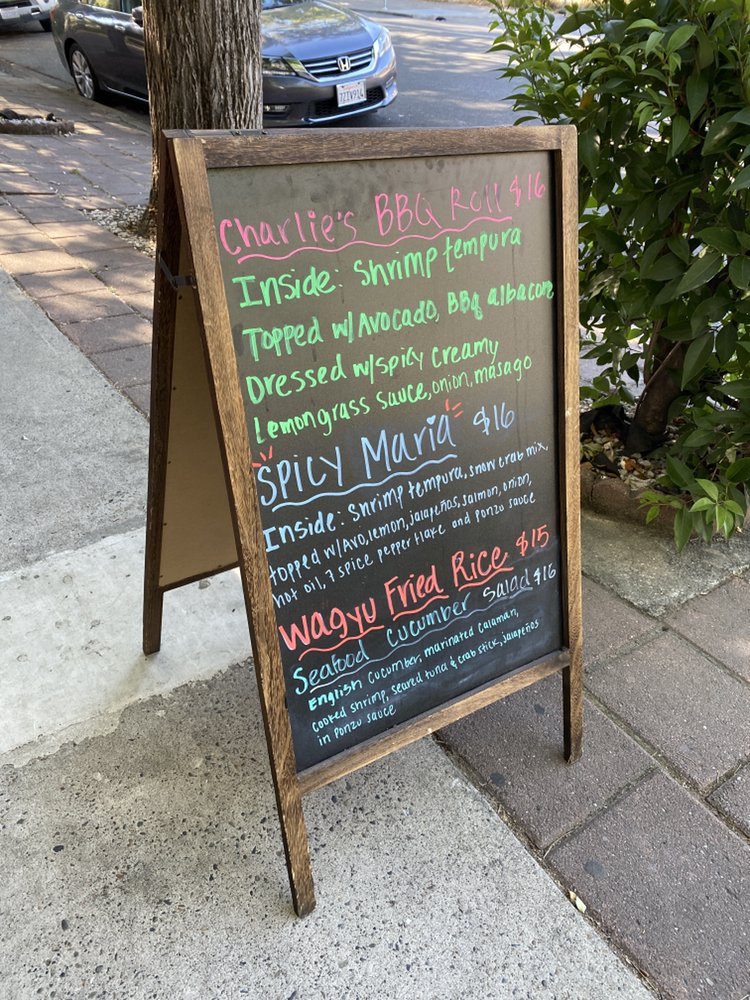 Charlie's BBQ Roll $16
Inside: Shrimp tempura
Topped w/Avocado, BBQ albacore
Dressed w/spicy creamy
Lemongrass sauce, onion, masago
Spicy Maria $16
Inside: Shrimp tempura, snow crab mix,
topped w/Avo, lemon, jalapeños, salmon, onion,
hot oil, 7 spice pepper flake and ponzu sauce
Wagyu Fried Rice $15
Seafood Cucumber Salad $16
English cucumber, marinated calamari,
cooked shrimp, seared tuna & crab stick, jalapeños
in ponzu sauce